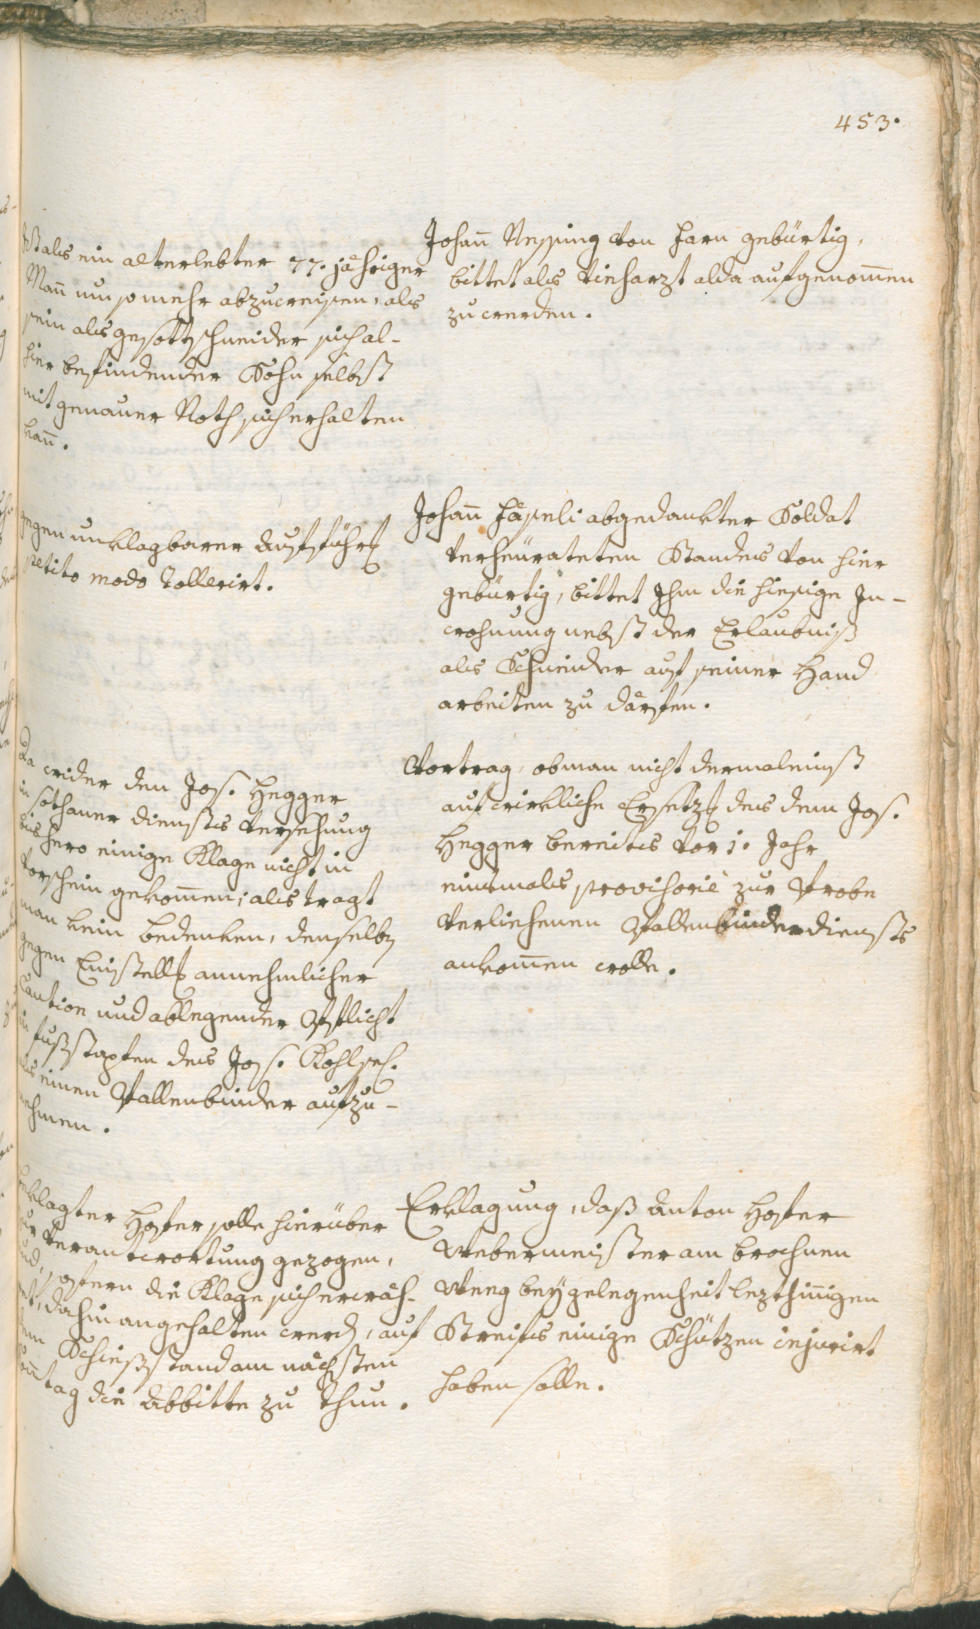 453.
Ist als ein alterlebter 77. jähriger
Mañ um so mehr abzuweisen, als
sein als gesottschneider sich al-
hier befindender Sohn selbst
mit genauer Noth sich erhalten
kañ.
Johañ Nessing von farn gebürtig,
bittet als Vieharzt alda aufgenom̄en
zu werden.
gegen unklagbarer Aufführg
petito modo tollerirt.
Johañ häfeli abgedankter Soldat
verheürateten Standes von hier
gebürtig, bittet Ihm die hiesige In-
wohnung nebst der Erlaubniß
als Schneider auf seiner Hand
arbeiten zu därfen.
Da wider den Jos. Hegger
in sothaner dienstes Versehung
bishero einige Klage nicht in
Vorschein gekom̄en; als tragt
man kein bedenken, denselbn
gegen Einstellg annehmlicher
Caution und ablegender Pflicht
in fußstapfen des Jos. Kohl sel.
als einen Pallenbinder aufzu-
nehmen.
Vortrag, ob man nicht dermaleinst
auf wirkliche Ersetzg des dem Jos.
Hegger bereits vor 1. Jahr
einsmals provisoriè zur Probe
verliehenen Pallenbinderdiensts
ankom̄en wolle.
beklagter Hofer solle hierüber
zur Verantwortung gezogen,
und, sofern die Klage sich erwäh-
ret, dahin angehalten werdn, auf
dem Schießstand am nächsten
Soñtag die Abbitte zu thun.
Erklagung, daß Anton Hofer
Webermeister am brochnen
Weeg bey gelegenheit lezthiñigen
Streifes einige Schützen injurirt
haben solle.